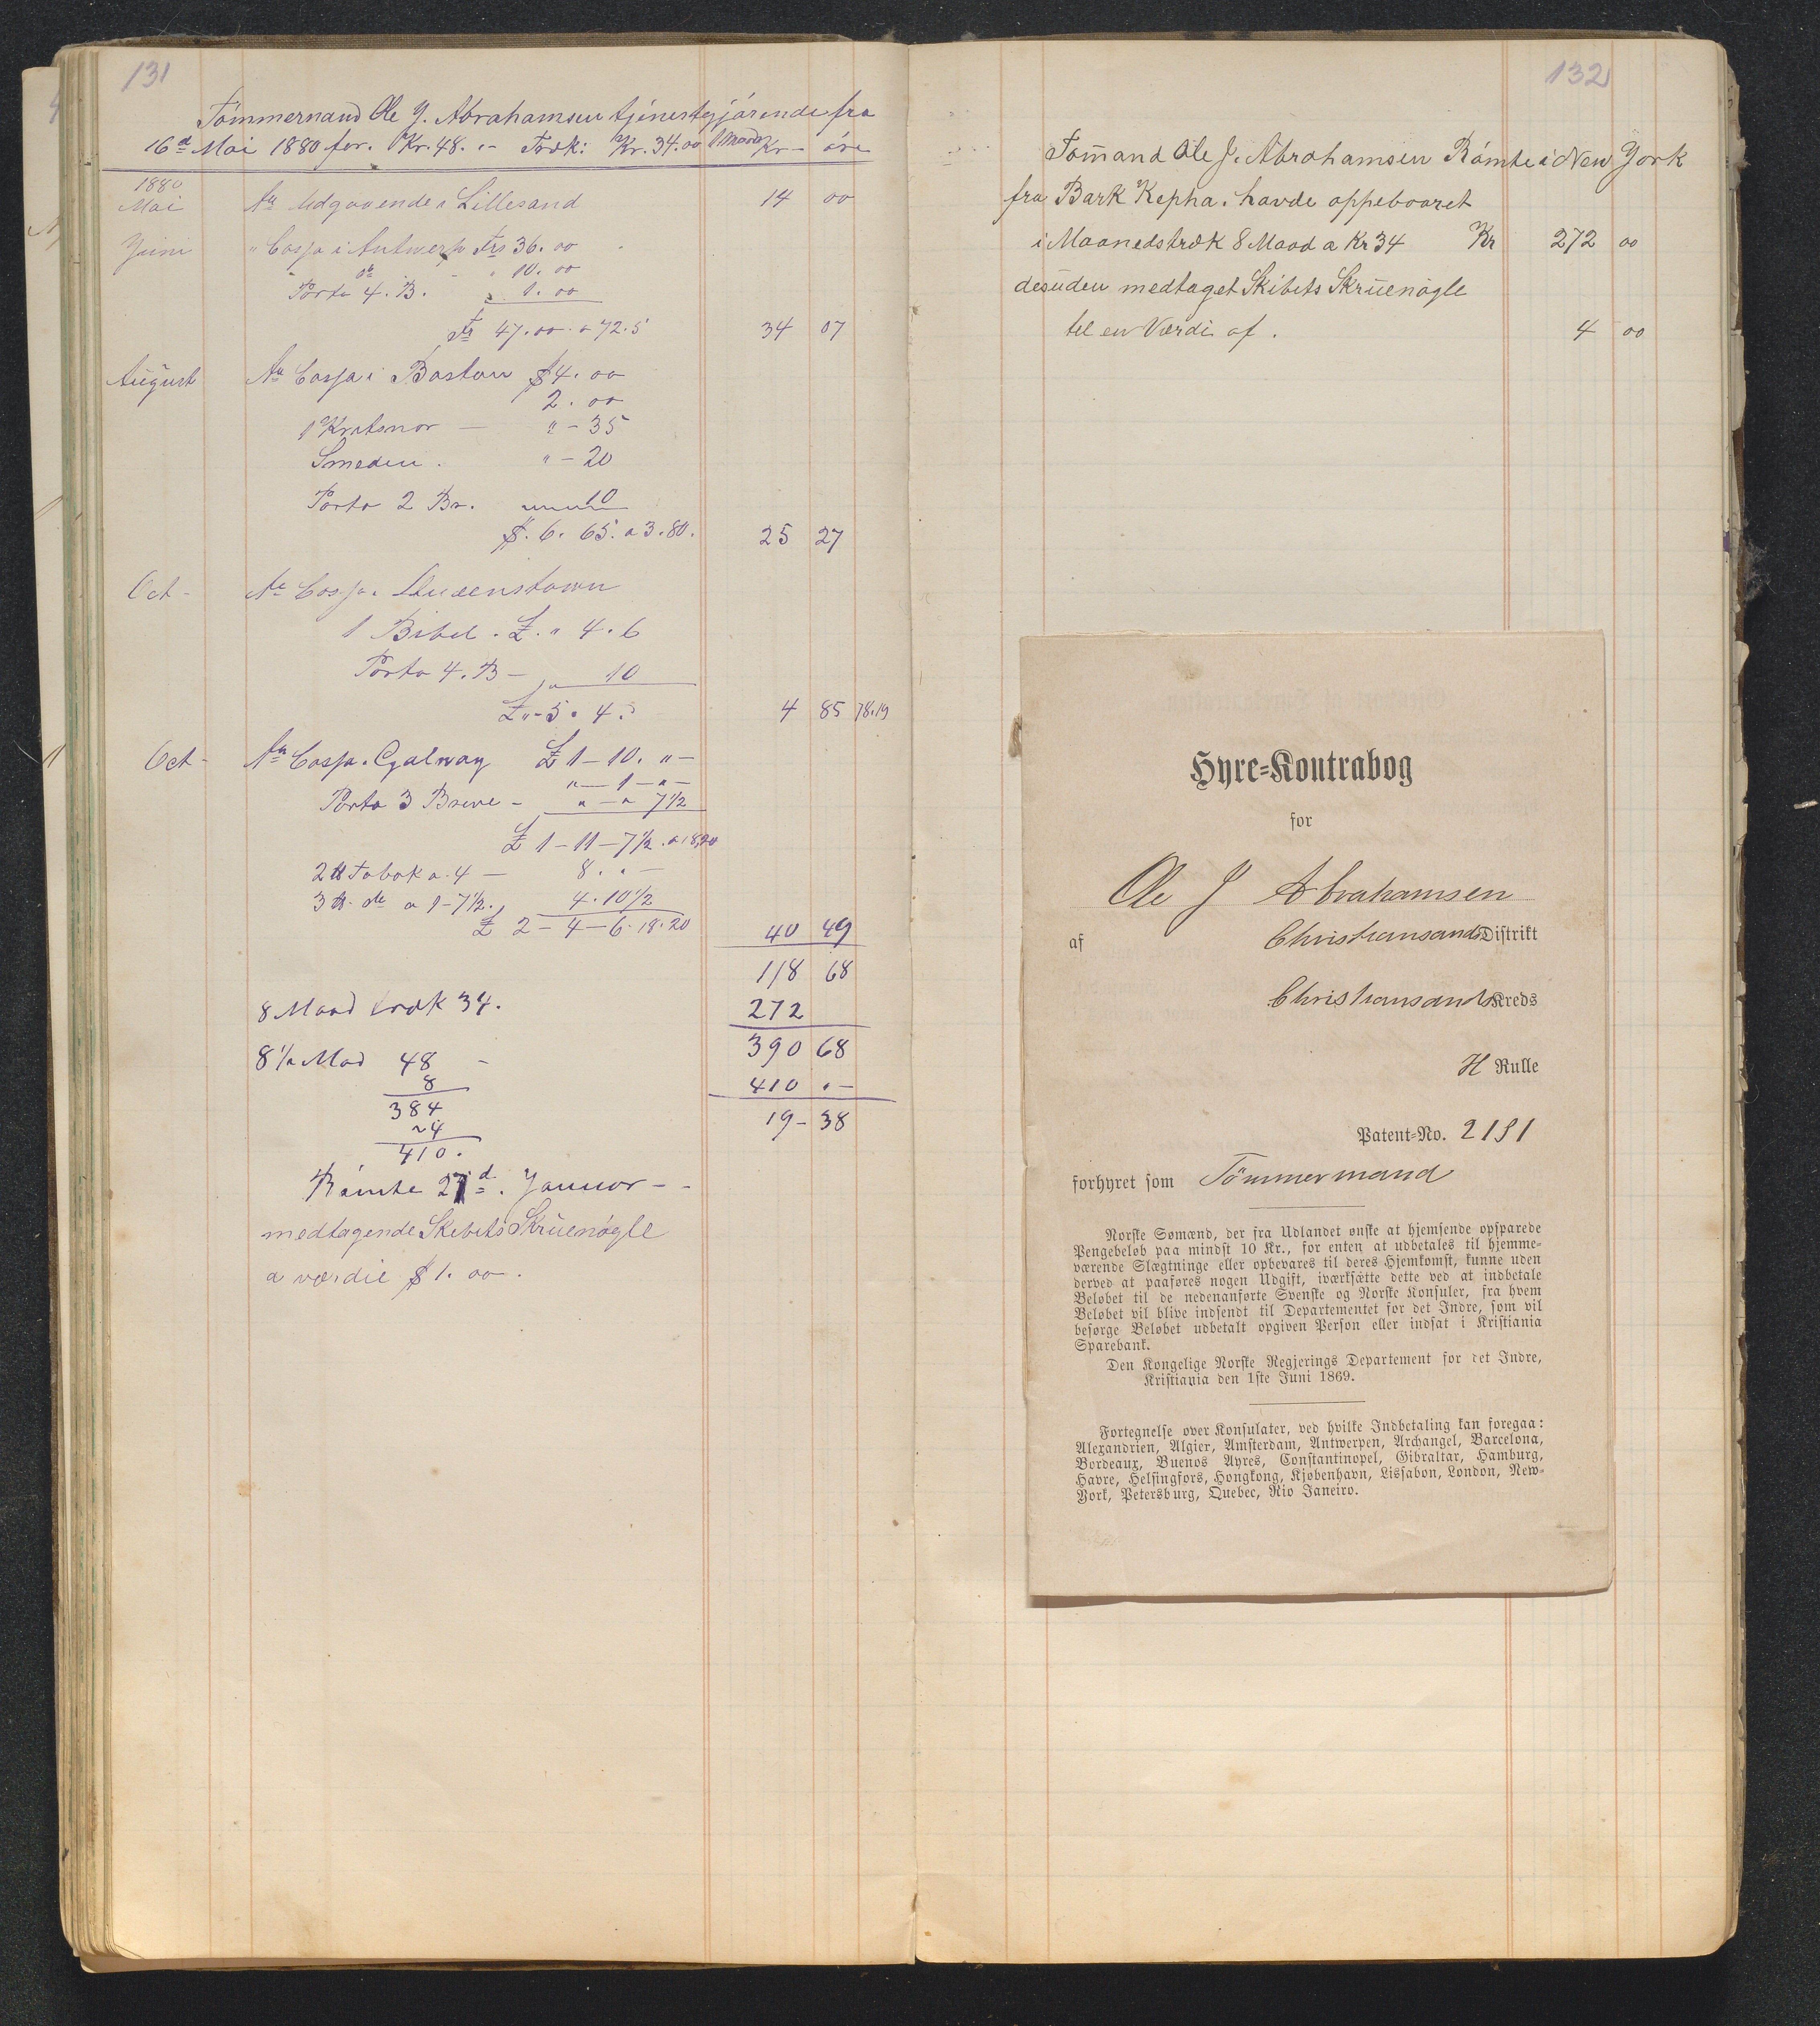 131
Tömmermand Ole J. Abrahamsen tjenestegjörende fra
16d Mai 1880 for. Kr. 48. „- Træk: Kr. 34.00 1 Maand Kr - öre
1880
Mai An Udgaaende i Lillesand 14 00
Juni " Cassa i Antwerp Frs 36. 00
" do " 10. 00
Porto 4. B. " 1. 00
Fr 47. 00 a 72.5 34 07
August An Cassa i Boston $ 4. 00
2. 00
1 " - 35
Smeden. " - 20
Porto 2 Br. 10
$. 6. 65. a 3.80. 25 27
Oct - An Cassa. Queenstown
1 Bibel. £. " 4. 6
Porto 4. B - " 10
£ " - 5. 4. 4 85 78.19
Oct - An Cassa. Galway £ 1 - 10. " -
" - 1 - " -
Porto 3 Breve - " - " 7 1/2
£ 1 - 11 - 7 1/2. a 18,20
2 ℔ Tobak a. 4 - 8. " -
3 ℔. do a 1 - 7 1/2. 4. 10 1/2
£ 2 - 4 - 6. 18.20 40 49
118 68
8 Maand træk 34. 272
390 68
8 1/2 Mad 48 -
8 410 „-
384
24 19 - 38
410.
Römte 27d. Januar - -
medtagende Skibets Skruenögle
a værdie $ 1. 00.
132
Tömmand Ole J. Abrahamsen Römte i New York
fra Bark Kepha. havde oppebaaret
i Maanedstræk 8 Maad a Kr 34 Kr 272 00
desuden medtaget Skibets Skruenögle
til en Værdi af. 4 00
Hyre-Kontrabog
for
Ole J Abrahamsen
af Christiansands Distrikt
Christiansands Kreds
H Rulle
Patent-No. 2191
forhyret som Tömmermand
Norske Sømænd, der fra Udlandet ønske at hjemsende opsparede
Pengebeløb paa mindst 10 Kr., for enten at udbetales til hjemme-
værende Slægtninge eller opbevares til deres Hjemkomst, kunne uden
derved at paaføres nogen Udgift, iværksætte dette ved at indbetale
Beløbet til de nedenanførte Svenske og Norske Konsuler, fra hvem
Beløbet vil blive indsendt til Departementet for det Indre, som vil
besørge Beløbet udbetalt opgiven Person eller indsat i Kristiania
Sparebank.
Den Kongelige Norske Regjerings Departement for det Indre,
Kristiania den 1ste Juni 1869.
Fortegnelse over Konsulater, ved hvilke Indbetaling kan foregaa:
Alexandrien, Algier, Amsterdam, Antwerpen, Archangel, Barcelona,
Bordeaux, Buenos Ayres, Constantinopel, Gibraltar, Hamburg,
Havre, Helsingfors, Hongkong, Kjøbenhavn, Lissabon, London, New-
York, Petersburg, Quebec, Rio Janeiro.